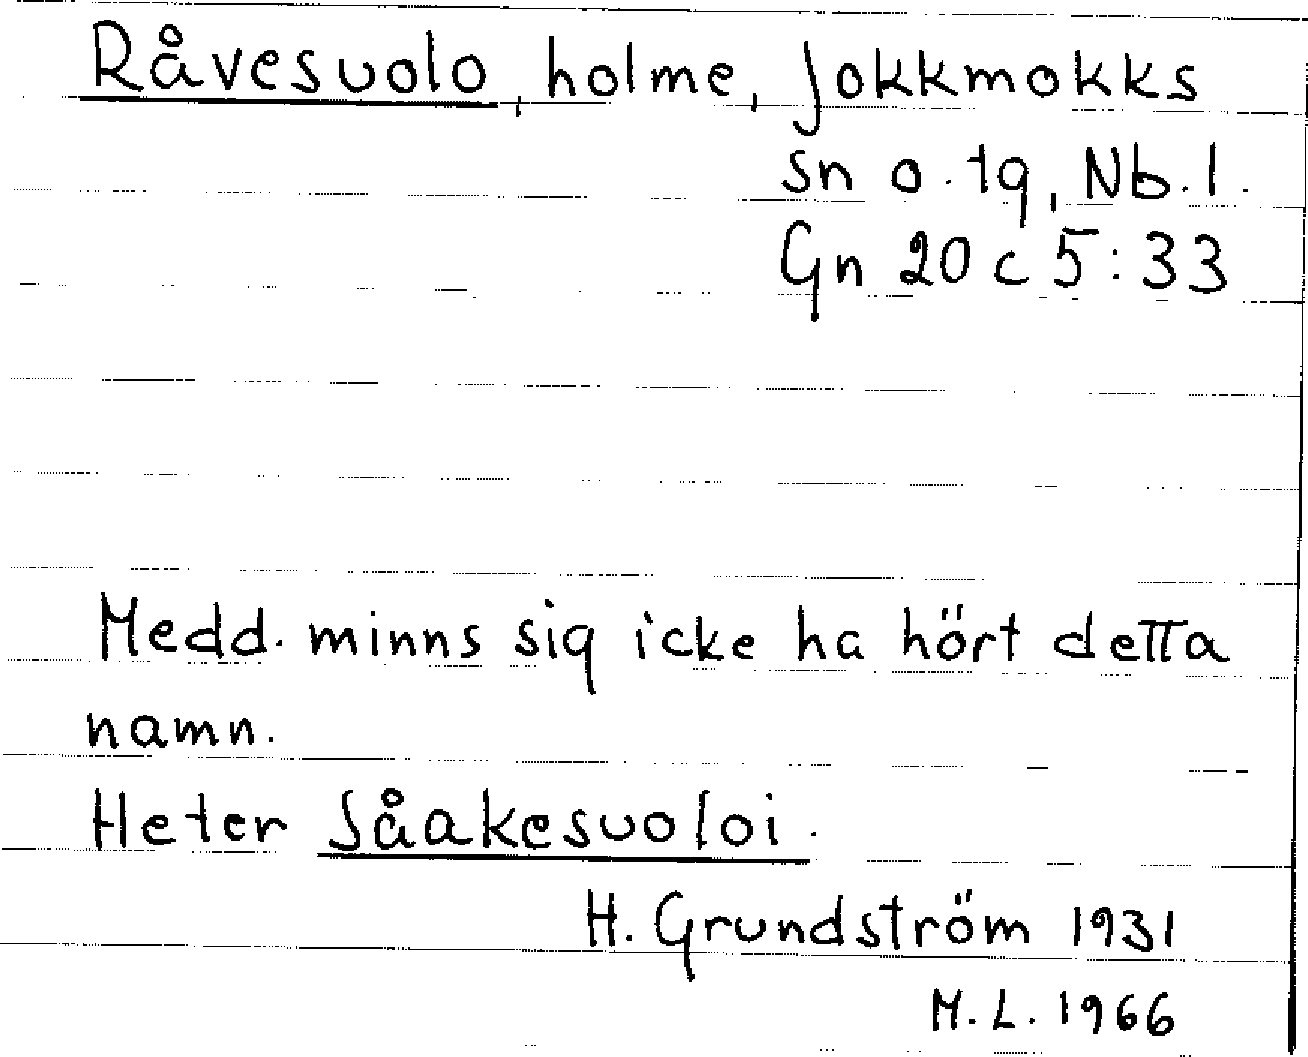 Råvesuolo, holme, Jokkmokks
sn o. tg, Nb. l.
Gn 20 c 5:33
Medd. minns sig icke ha hört detta
namn.
Heter Såakesuoloi.
H. Grundström 1931
M. L. 1966